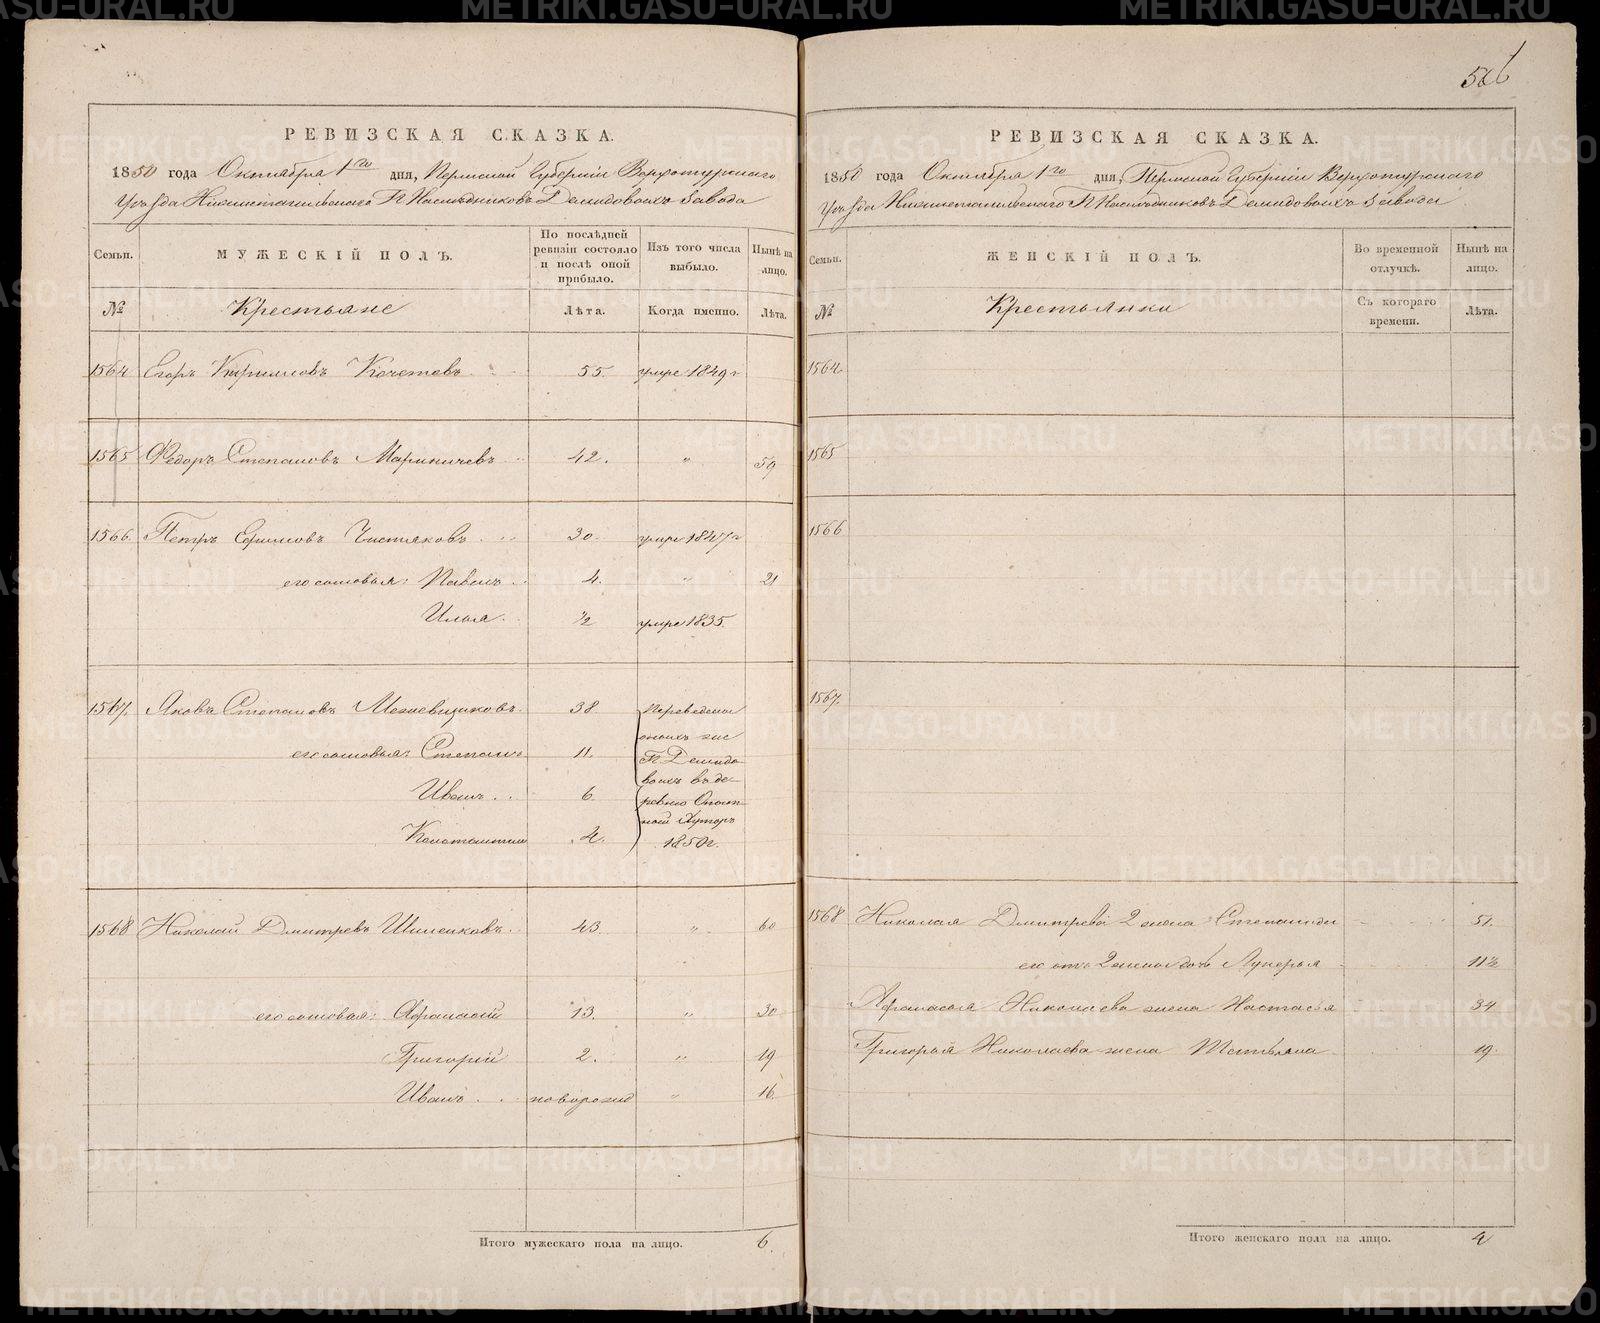 526
РЕВИЗСКАЯ СКАЗКА.
1850 года Октября 1го дня, Пермской Губернии Верхотурскаго
Уѣзда Нижнетагильскаго Г. Наслѣдниковъ Демидовыхъ завода
Семьи. МУЖЕСКІЙ ПОЛЪ. По послѣдней ревизіи состояло и послѣ оной прибыло. Изъ того числа выбыло. Нынѣ на лицо.
№ Крестьяне Лѣта. Когда именно. Лѣта.
1564 Егоръ Кириловъ Кочетовъ 55. умре 1849 г
1565 Ѳедоръ Степановъ 42. " 59
1566. Петръ Ефимовъ Чистяковъ 30. умре 1847 г
его сыновья: Павелъ 4. " 21
Илья ½ умре 1835.
1567. Яковъ Степановъ 38
его сыновья: Степанъ 11.
Иванъ 6
Константинъ 4.
Переведены
оныхъ же
Г Демидо
выхъ въ де
ревню
Хуторъ
1850 г.
1568 Николай Дмитревъ Шиленковъ 43. " 60
его сыновья: Афанасій 13. " 30
Григорій 2. " 19
Иванъ новорожд " 16
Итого мужескаго пола на лицо. 6.
РЕВИЗСКАЯ СКАЗКА.
1850 года Октября 1го дня, Пермской Губерніи Верхотурскаго
Уѣзда Нижнетагильскаго Г. Наслѣдниковъ Демидовыхъ завода
Семьи. ЖЕНСКІЙ ПОЛЪ. Во временной отлучкѣ. Нынѣ на лицо.
№ Крестьянки Съ котораго времени. Лѣта.
1564
1565
1566
1567.
1568 Николая Дмитрева 2 жена Степанида 51.
его отъ 2 жены дочь Лукерья 11½
Афанасья Николаева жена Настасья 34
Григорья Николаева жена Татьяна 19.
Итого женскаго пола на лицо. 4
METRIKI.GASO-URAL.RU